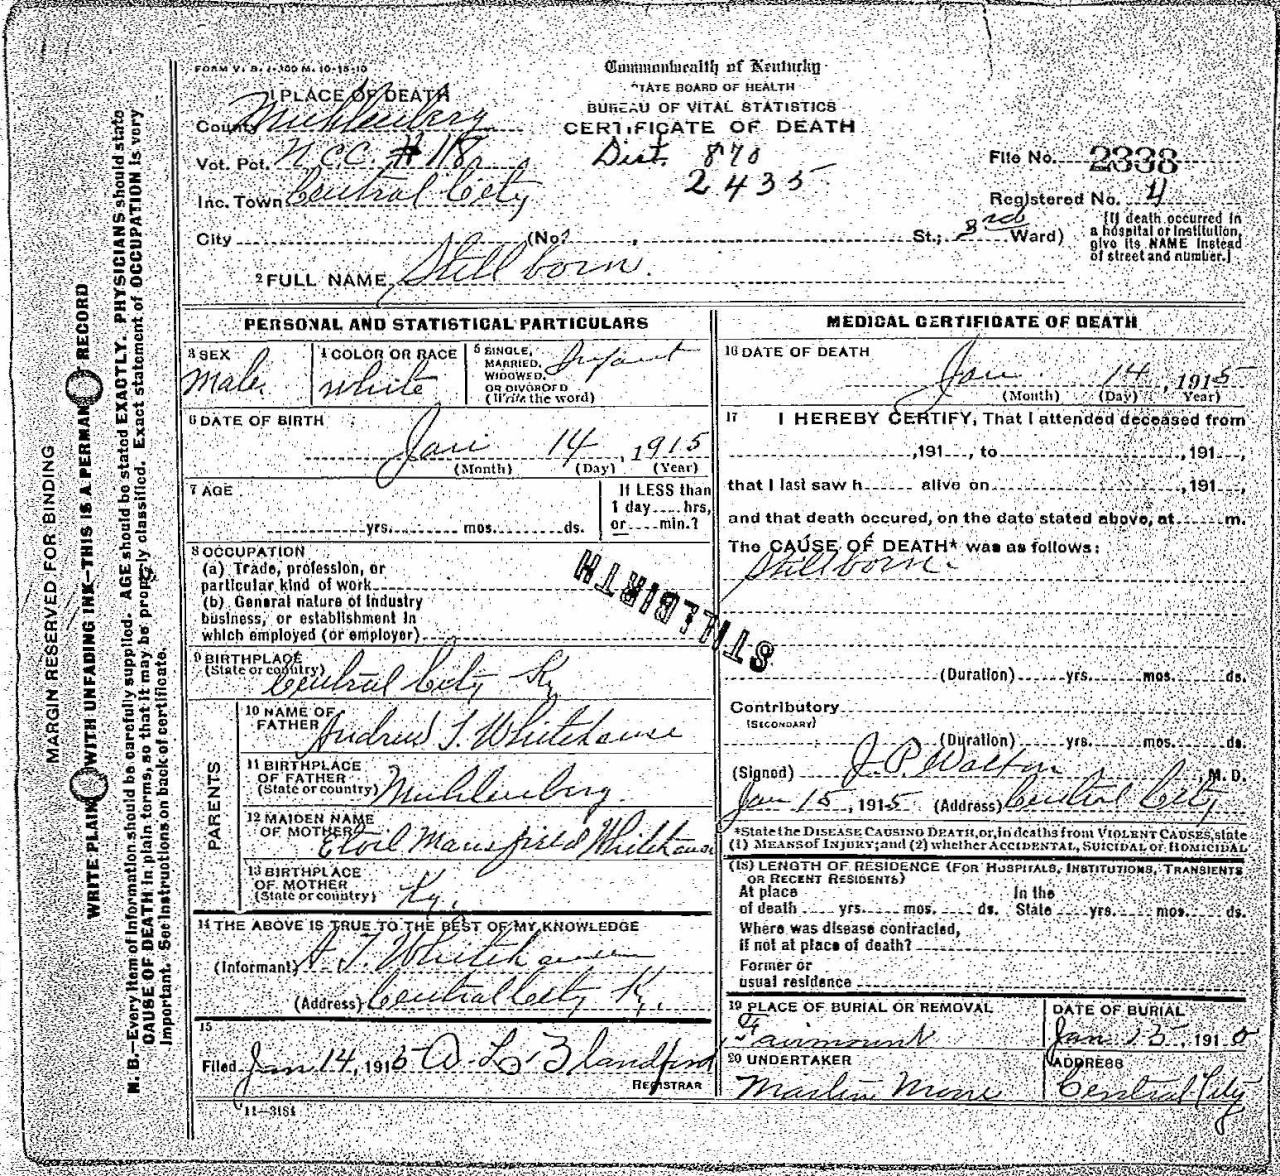 FORM V. S. 1-300 M. 10-15-10
Commonwealth of Kentucky
STATE BOARD OF HEALTH
BUREAU OF VITAL STATISTICS
CERTIFICATE OF DEATH
1 PLACE OF DEATH
County Muhlenberg
Vot. Pct. N.C.C. # 118
Dist. 870
2435
File No. 2338
Inc. Town Central City
Registered No. 4
City (No. , St.; 3rd Ward)
[If death occurred in
a hospital or institution,
give its NAME instead
of street and number.]
2 FULL NAME Stillborn.
PERSONAL AND STATISTICAL PARTICULARS
3 SEX
Male
4 COLOR OR RACE
White
5 SINGLE,
MARRIED,
WIDOWED,
OR DIVORCED
(Write the word)
Infant
6 DATE OF BIRTH
Jan 14, 1915
(Month) (Day) (Year)
7 AGE
yrs. mos. ds.
If LESS than
1 day hrs,
or min.?
8 OCCUPATION
(a) Trade, profession, or
particular kind of work
(b) General nature of industry
business, or establishment in
which employed (or employer)
9 BIRTHPLACE
(State or country) Central City Ky
PARENTS
10 NAME OF
FATHER Andrew T. Whitehouse
11 BIRTHPLACE
OF FATHER
(State or country) Muhlenberg.
12 MAIDEN NAME
OF MOTHER Mansfield Whitehouse
13 BIRTHPLACE
OF MOTHER
(State or country) Ky.
14 THE ABOVE IS TRUE TO THE BEST OF MY KNOWLEDGE
(Informant) A T. Whitehouse
(Address) Central City Ky.
15
Filed Jan 14, 1915 A. L. Blandford
REGISTRAR
11-3184
STILLBIRTH
MEDICAL CERTIFICATE OF DEATH
16 DATE OF DEATH
Jan. 14, 1915
(Month) (Day) Year)
17 I HEREBY CERTIFY, That I attended deceased from
,191 , to ,191 ,
that I last saw h alive on ,191 ,
and that death occured, on the date stated above, at m.
The CAUSE OF DEATH* was as follows:
Stillborn.
(Duration) yrs. mos. ds.
Contributory
(SECONDARY)
(Duration) yrs. mos. ds.
(Signed) J. P. Walton, M. D.
Jan 15, 1915 (Address) Central City
*State the DISEASE CAUSING DEATH, or, in deaths from VIOLENT CAUSES, state
(1) MEANS OF INJURY; and (2) whether ACCIDENTAL, SUICIDAL or HOMICIDAL
(18) LENGTH OF RESIDENCE (FOR HOSPITALS, INSTITUTIONS, TRANSIENTS
OR RECENT RESIDENTS)
At place In the
of death yrs. mos. ds. State yrs. mos. ds.
Where was disease contracted,
if not at place of death?
Former or
usual residence
19 PLACE OF BURIAL OR REMOVAL
Fairmount
DATE OF BURIAL
Jan 15, 1910
20 UNDERTAKER
Martin Moore
ADDRESS
Central City
MARGIN RESERVED FOR BINDING
WRITE PLAIN WITH UNFADING INK—THIS IS A PERMAN RECORD
N. B.—Every item of information should be carefully supplied. AGE should be stated EXACTLY. PHYSICIANS should state
CAUSE OF DEATH in plain terms, so that it may be properly classified. Exact statement of OCCUPATION is very
important. See instructions on back of certificate.